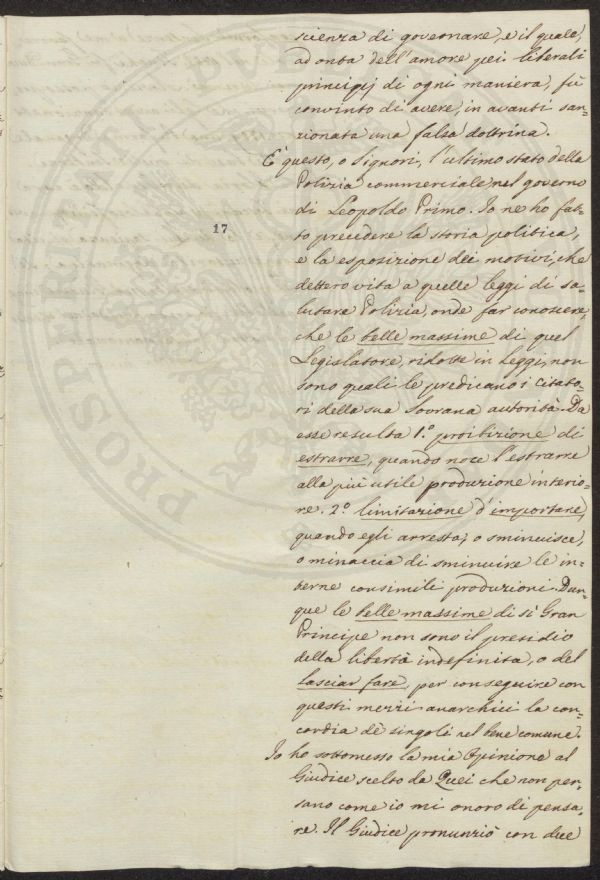 scienza di governare, e il quale,
ad onta dell'amore pei liberali
principj di ogni maniera, fù
convinto di avere, in avanti san=
zionata una falsa dottrina.
E' questo, o Signori, l'ultimo stato della
Polizia commerciale nel governo
di Leopoldo Primo. Io ne ho fat=
to precedere la storia politica,
e la esposizione dei motivi, che
dettero vita a quelle leggi di sa=
lutare Polizia, onde far conoscere,
che le belle massime di quel
Legislatore, ridotte in Leggi, non
sono quali le predicano i citato=
ri della sua Sovrana autorità. Da
esse resulta 1.º proibizione di
estrarre, quando noce l'estrarre
alla più utile produzione interio=
re. 2.º limitazione d'importare,
quando egli arresta, o sminuisce,
o minaccia di sminuire le in=
terne consimili produzioni. Dun=
que le belle massime di sì Gran
Principe non sono il presidio
della libertà indefinita, o del
lasciar fare, per conseguire con
questi mezzi anarchici la con=
cordia dè singoli nel bene comune.
Io ho sottomesso la mia Opinione al
Giudice scelto da Quei che non pen=
sano come io mi onoro di pensa=
re. Il Giudice pronunziò con due
17
PROSPERI